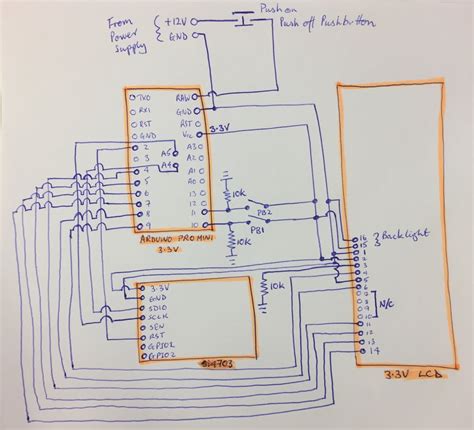 From
Power
supply
+12V
GND
Push on
Push off Pushbutton
TXO
RX1
RST
GND
2
3
4
5
6
7
8
9
A5
A4
RAW
GND
RST
Vcc
3.3V
A3
A2
A1
A0
13
12
11
10
ARDUINO PRO MINI
3.3V
10K
10K
PB2
PB1
10K
3.3V
GND
SDIO
SCLK
SEN
RST
GPIO1
GPIO2
Si4703
16
15
} Backlight
1
2
3
4
5
6
7
8
9
10
] N/C
11
12
13
14
3.3V LCD